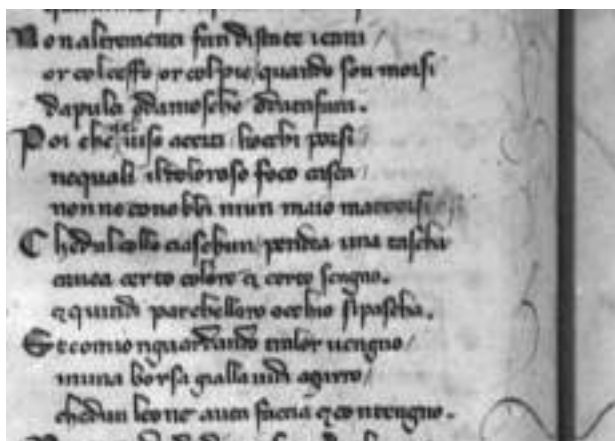 Non altrementi fan distate icani /
or colceffo / or colpie / quando son morsi
dapulci odamosche odatafani .
Poi che uiso acerti liocchi porsi /
nequali ildoloroso foco casca /
non ne conobbi niun maio maccorsi /
Chedalcollo aciaschun / pendea una tascha
cauea certo colore & certo sengno .
& quindi parchelloro occhio sipascha .
Et comio riguardando tralor uengno /
inuna borsa gialla uidi açurro /
chedun leone auea faccia & contengno .